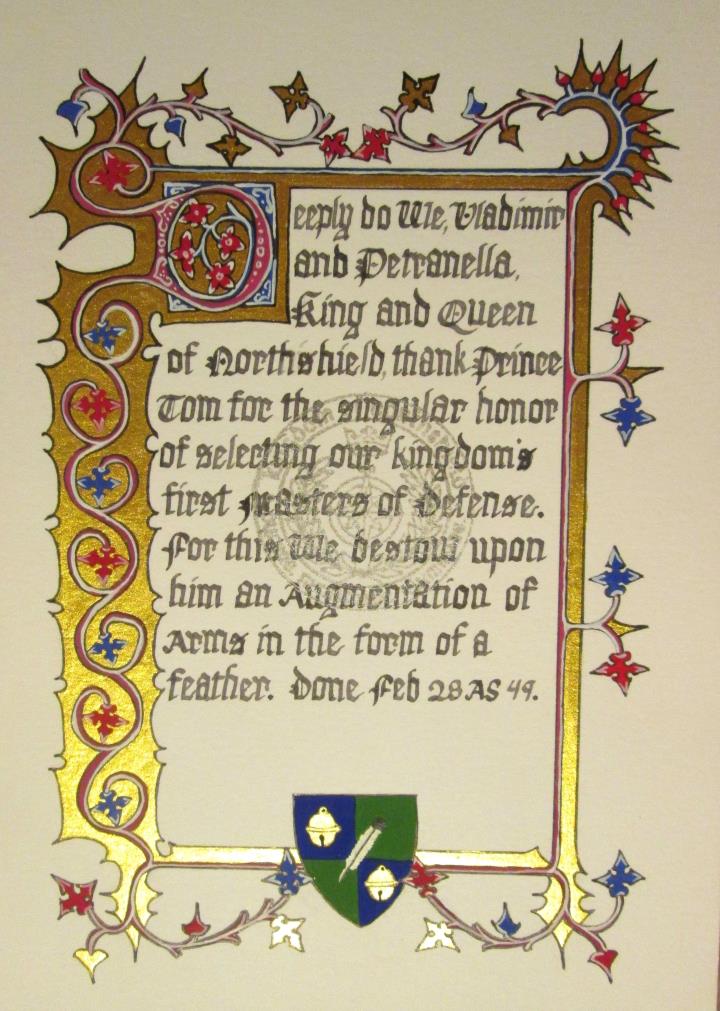 Deeply do We, Vladimir
and Petranella,
King and Queen
of Northshield, thank Prince
Tom for the singular honor
of selecting our kingdom's
first Masters of Defense.
For this We bestow upon
him an Augmentation of
Arms in the form of a
feather. Done Feb 28 AS 49.